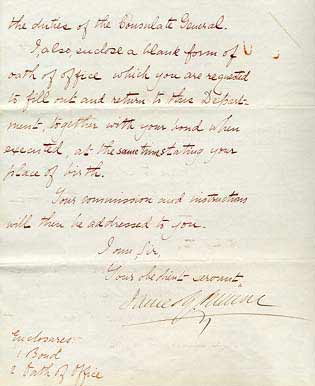 the duties of the Consulate General.
I also enclose a blank form of
oath of office which you are requested
to fill out and return to this Depart-
ment, together with your bond when
executed, at the same time stating your
place of birth.
Your commission and instructions
will then be addressed to you.
I am, Sir,
Your obedient servant,
James G. Blaine
Enclosures:
1. Bond
2 Oath of Office